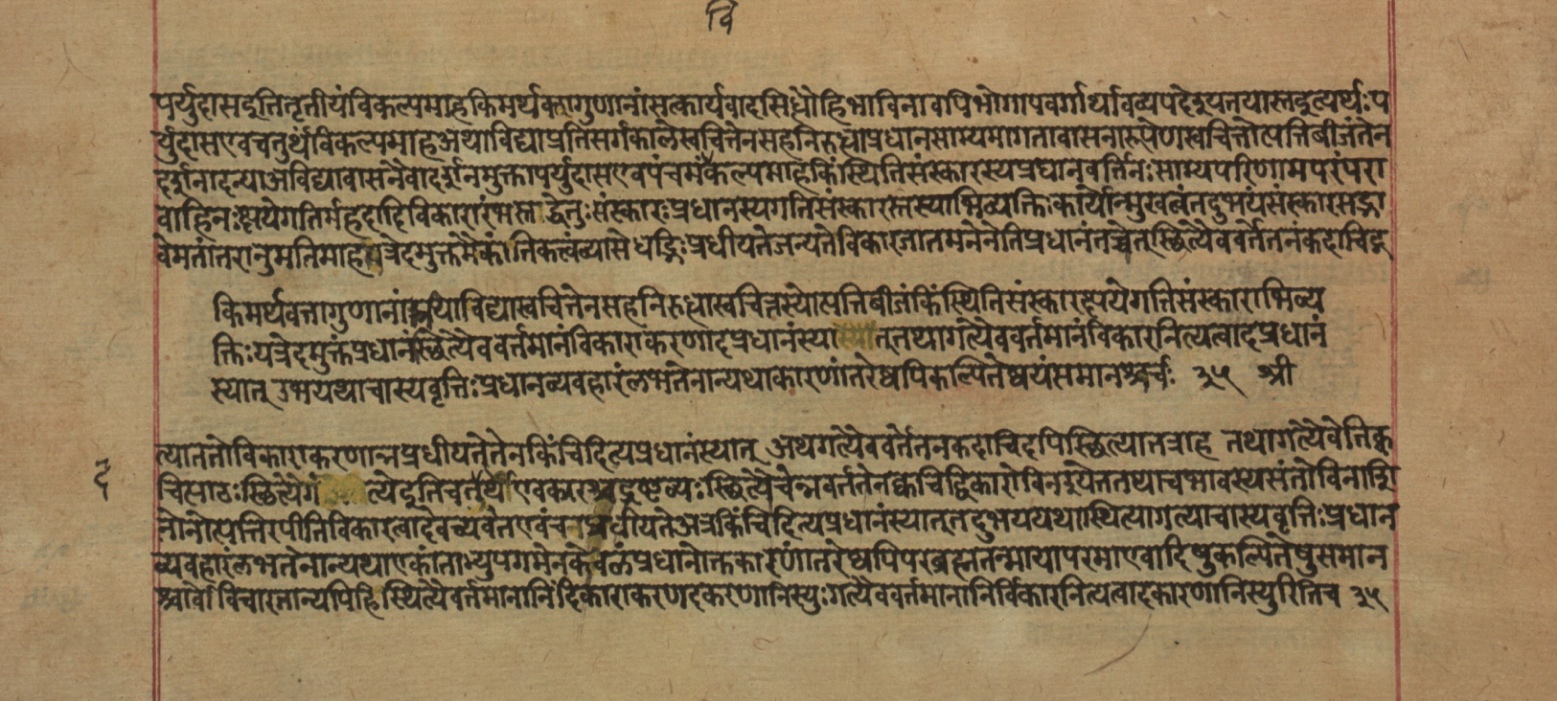 वि
पर्युदासइतितृतीयंविकल्पमाहकिमर्थवत्तागुणानांसत्कार्यवादसिद्धौहिभाविनावपिभोगापवर्गार्थावव्यपदेश्यतयास्तइत्यर्थःप
र्युदासएवचतुर्थंविकल्पमाहअथाविद्याप्रतिसर्गकालेस्वचित्तेनसहनिरुद्धाप्रधानसाम्यमागतावासनारूपेणस्वचित्तोत्पत्तिबीजंतेन
दर्शनादन्याअविद्यावासनैवादर्शनमुक्तापर्युदासएवपंचमंकल्पमाहकिंस्थितिसंस्कारस्यप्रधानवर्त्तिनःसाम्यपरिणामपरंपरा
वाहिनःक्षयेगतिर्महदादिविकारारंभस्तद्धेतुःसंस्कारःप्रधानस्यगतिसंस्कारस्तस्याभिव्यक्तिःकार्योन्मुखत्वंतदुभयंसंस्कारसद्भा
वेमतांतरानुमतिमाहयत्रेदमुक्तमैकांतिकत्वंव्यासेधद्भिःप्रधीयतेजन्यतेविकारजातमनेनेतिप्रधानंतच्चेत्स्थित्यैववर्त्तेतनकदाचिद्ग
किमर्थवत्तागुणानांअथाविद्यास्वचित्तेनसहनिरुद्धास्वचित्तस्योत्पत्तिबीजंकिंस्थितिसंस्कारक्षयेगतिसंस्काराभिव्य
क्तिःयत्रेदमुक्तंप्रधानंस्थित्यैववर्त्तमानंविकाराकरणादप्रधानंस्यात्तथागत्यैववर्तमानंविकारनित्यत्वादप्रधानं
स्यात् उभयथाचास्यवृत्तिःप्रधानव्यवहारंलभतेनान्यथाकारणांतरेष्वपिकल्पितेष्वयंसमानश्चर्चः २५ श्री
त्यातत्तोविकाराकरणान्नप्रधीयतेतेनकिंचिदित्यप्रधानंस्यात् अथगत्यैववर्त्तेतनकदाचिदपिस्थित्यातत्राह तथागत्यैवेतिक्व
चित्पाठःस्थित्यैग त्यैइतिचतुर्थ्याएवकारश्चद्रष्टव्यःस्थित्यैचेन्नवर्त्ततेनक्वचिद्विकारोविनश्येत्ततथाचभावस्यसतोविनाशि
नोनोत्पत्तिरपीतिविकारत्वादेवच्यवेतएवंच प्रधीयतेअत्रकिंचिदित्यप्रधानंस्यात्तदुभययथास्थित्यागत्याचास्यवृत्तिःप्रधान
व्यवहारंलभतेनान्यथाएकांताभ्युपगमेनकेवलंप्रधानोक्तकारणांतरेष्वपिपरब्रह्मतन्मायापरमाण्वादिषुकल्पितेषुसमान
श्चर्चोविचारस्तान्यपिहिस्थित्यैवर्त्तमानानिविकाराकरणदकरणानिस्युःगत्यैववर्त्तमानानिर्विकारनित्यत्वादकारणानिस्युरितिच २५